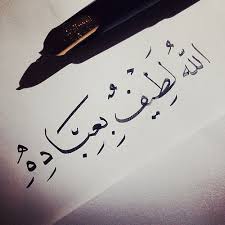 اللّٰه لَطِيفٌ بِعِبَادِهِ